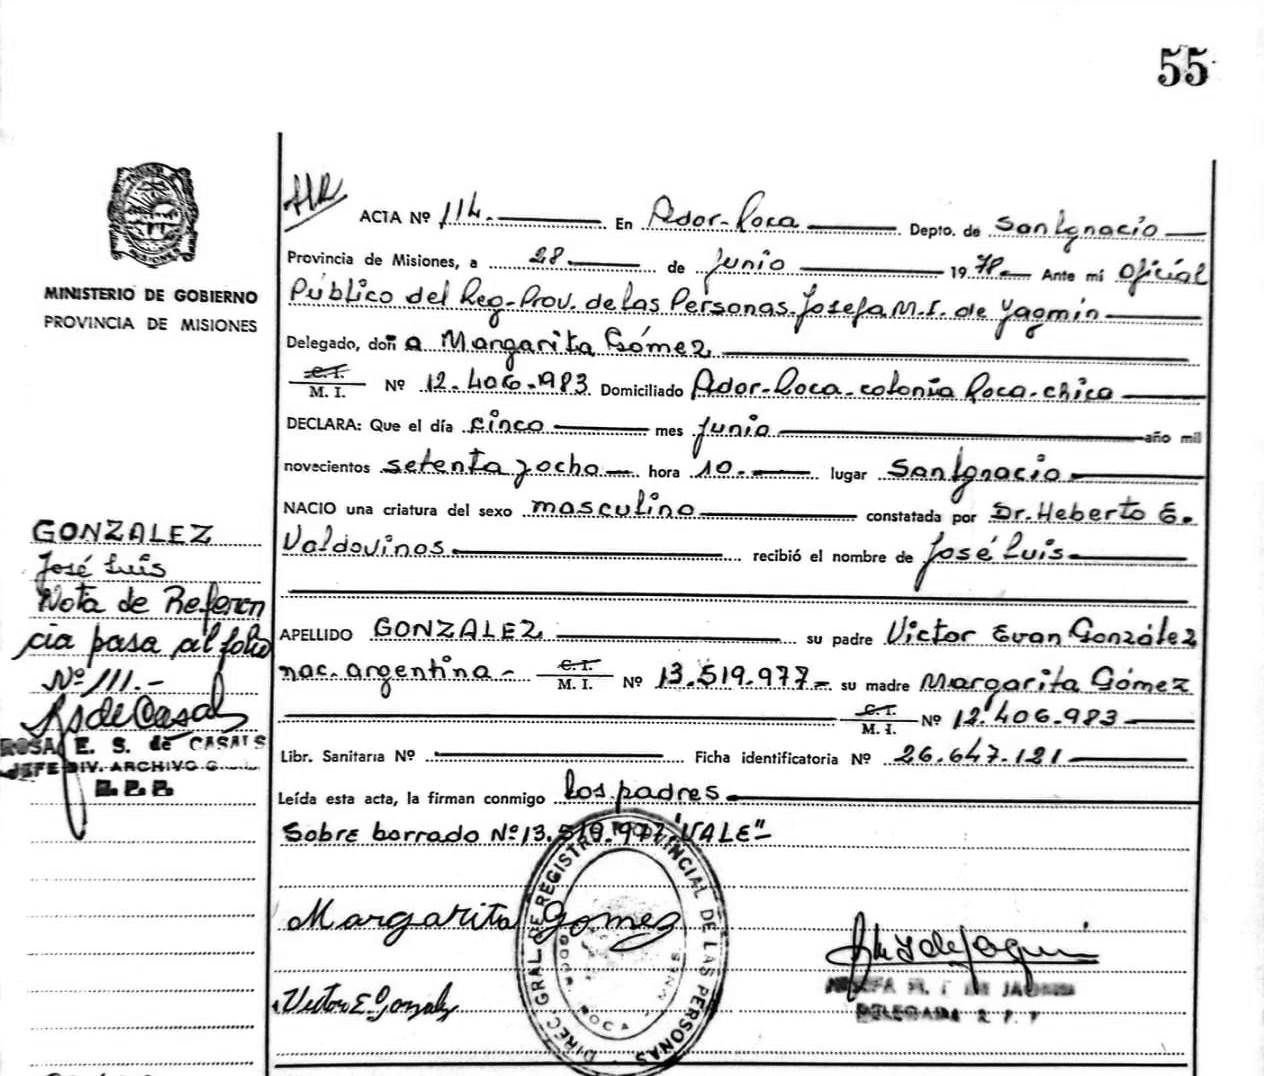 55
MINISTERIO DE GOBIERNO
PROVINCIA DE MISIONES
ACTA Nº 114. En Ador-Roca Depto. de San Ignacio
Provincia de Misiones, a 28 de junio 1978 Ante mí Oficial
Público del Reg-Prov. de las Personas. Josefa M.I. de Yagmin
Delegado, doña Margarita Gómez
C.I.
M. I. Nº 12.406.983 Domiciliado Ador-Roca-colonia Roca-chica
DECLARA: Que el día cinco mes junio año mil
novecientos setenta y ocho hora 10. lugar San Ignacio
NACIO una criatura del sexo masculino constatada por Dr. Heberto E.
Valdovinos recibió el nombre de José Luis
APELLIDO GONZALEZ su padre Victor Evan González
nac. argentina - C.I. M. I. Nº 13.519.977- su madre Margarita Gómez
C.I.
M. I. Nº 12.406.983
Libr. Sanitaria Nº Ficha identificatoria Nº 26.647.121
Leída esta acta, la firman conmigo los padres
Sobre borrado Nº 13.519.977 "VALE"
Margarita Gomez
Victor E. Gonzalez
DELEGADA R. P. P.
DIREC. GRAL. DE REGISTRO PROVINCIAL DE LAS PERSONAS
ROCA
GONZALEZ
José Luis
Nota de Referen
cia pasa al folio
Nº 111.-
R S de Casals
ROSA E. S. de CASALS
JEFE DIV. ARCHIVO G
R.P.P.